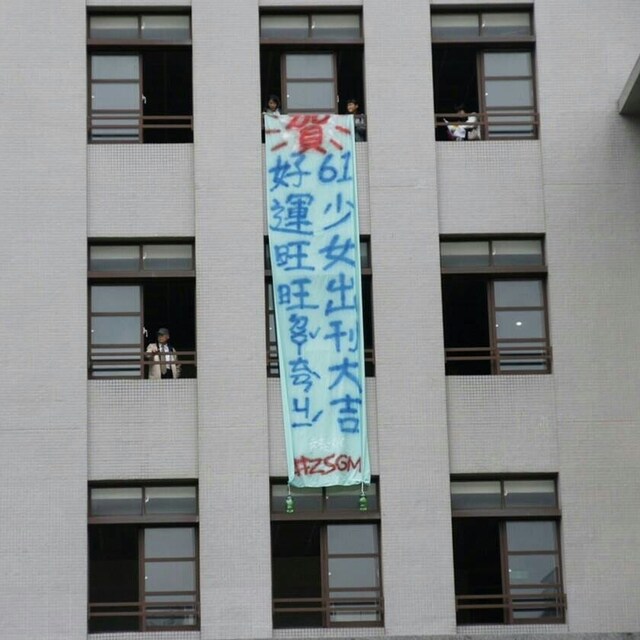 賀
61少女出刊大吉
好運旺旺
#ZSGM